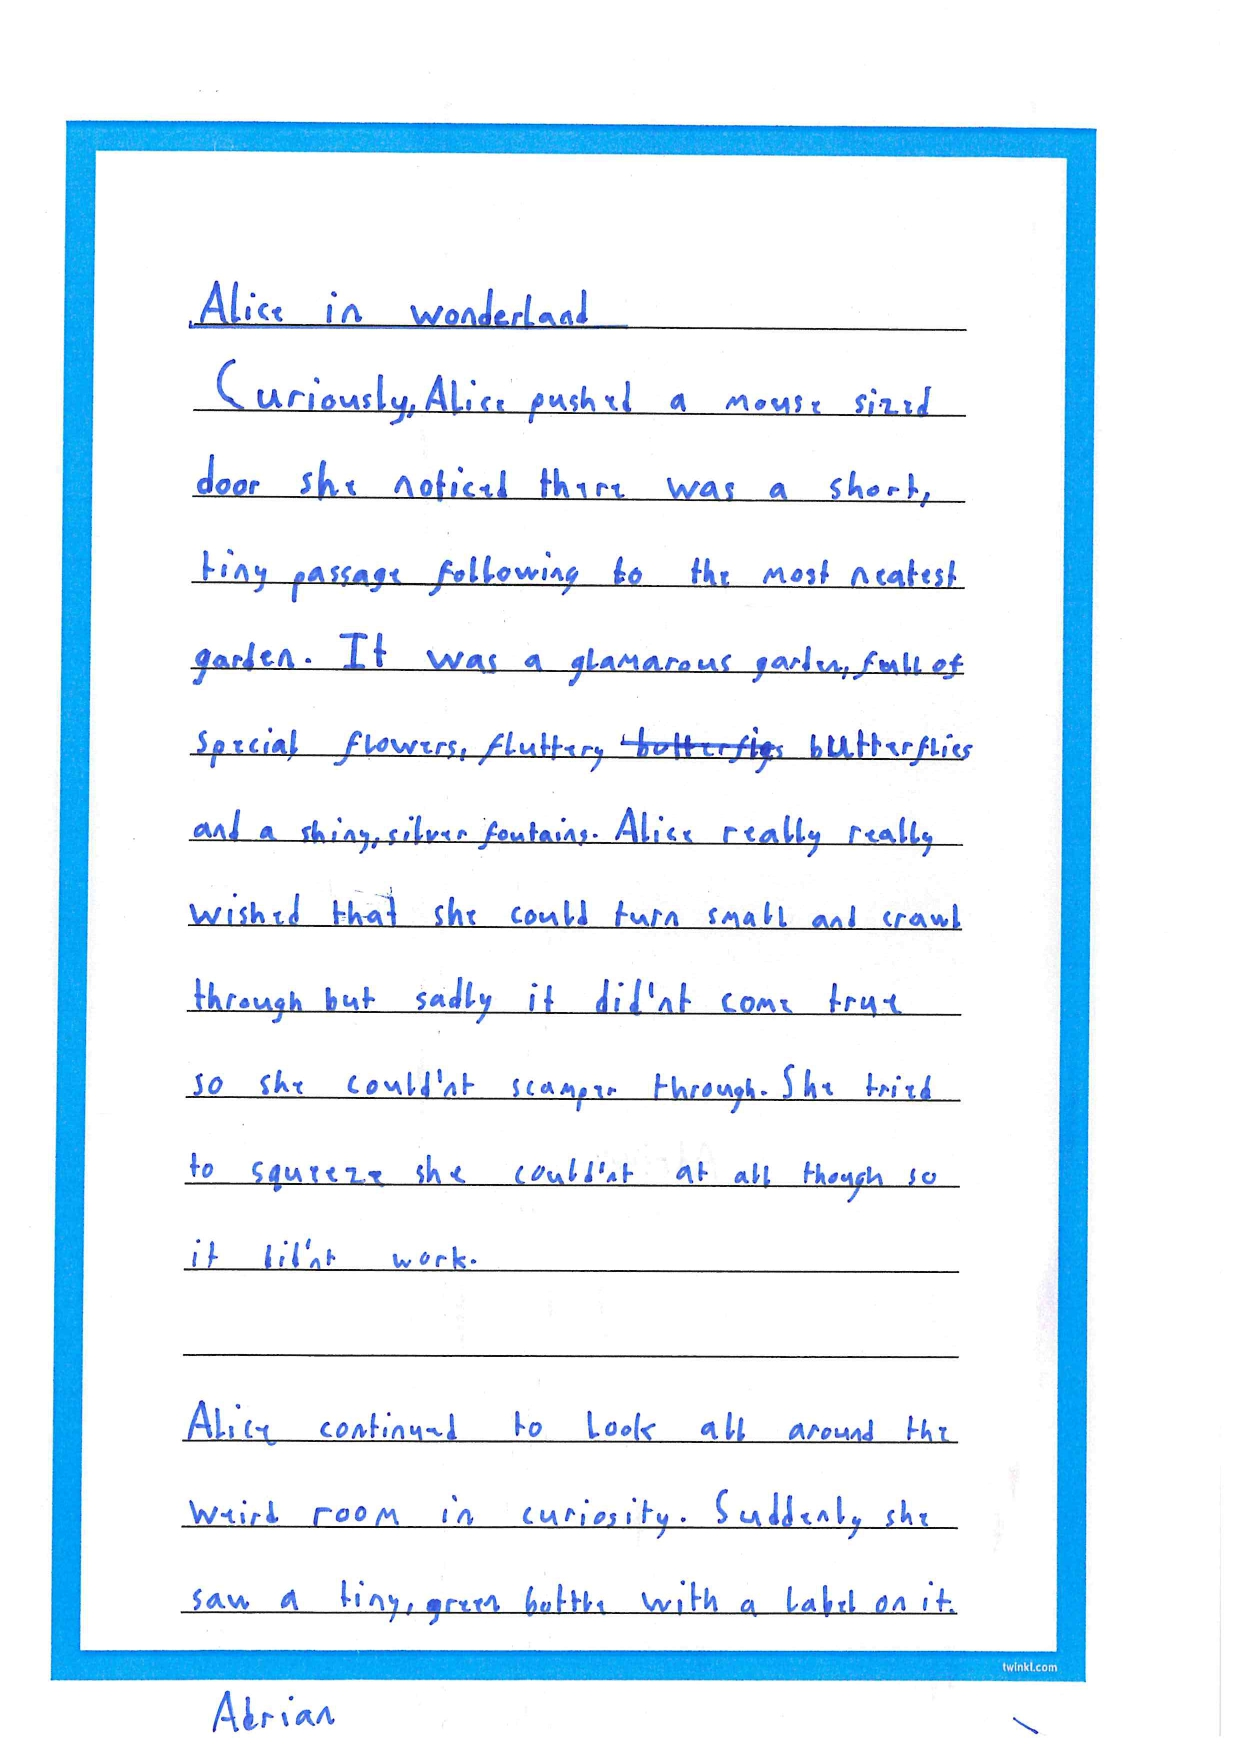 Alice in wonderland
Curiously, Alice pushed a mouse sized
door she noticed there was a short,
tiny passage following to the most neatest
garden. It was a glamarous garden, full of
special flowers, fluttery butterfies butterflies
and a shiny, silver fountains. Alice really really
wished that she could turn small and crawl
through but sadly it did'nt come true
so she could'nt scamper through. She tried
to squeeze she could'nt at all though so
it did'nt work.
Alice continued to look all around the
weird room in curiosity. Suddenly she
saw a tiny, green bottle with a label on it.
twinkl.com
Adrian